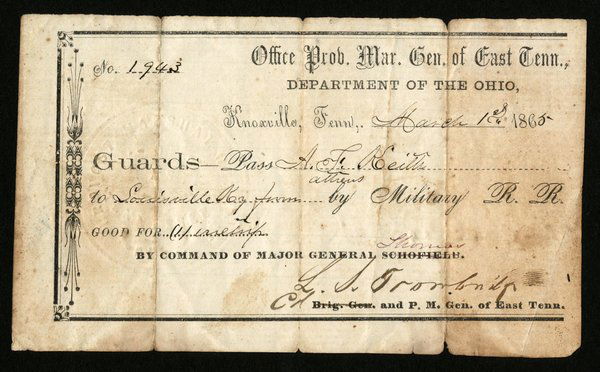 Office Prov. Mar. Gen. of East Tenn.,
No. 1943
DEPARTMENT OF THE OHIO,
Knoxville, Tenn., March 1st 1865
Guards—Pass A. F. Keith
athens
to Louisville Ky from by Military R. R.
GOOD FOR
Thomas
BY COMMAND OF MAJOR GENERAL SCHOFIELD.
L. S. Trowbridge
Brig. Gen. and P. M. Gen. of East Tenn.